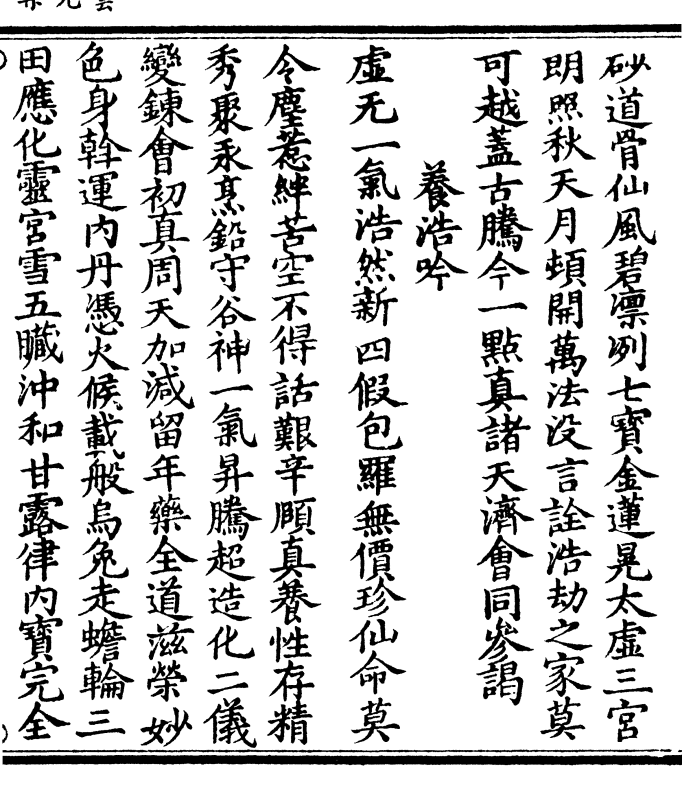 砂道骨仙風碧凛冽七寶金蓮晃太虛三宮
明照秋天月頓開萬法没言詮浩劫之家莫
可越蓋古騰今一點真諸天濟會同參謁
養浩吟
虛无一氣浩然新四假包羅無價珍仙命莫
令塵惹絆苦空不得話艱辛頤真養性存精
秀聚汞烹鉛守谷神一氣昇騰超造化二儀
變鍊會初真周天加減留年藥全道滋榮妙
色身斡運内丹憑火候載般烏兔走蟾輪三
田應化靈宮雪五臟沖和甘露律内寶完全